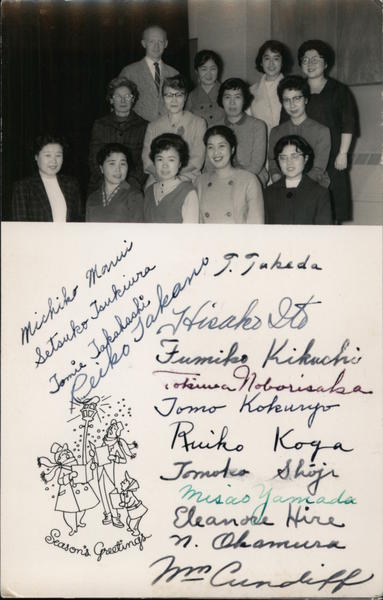 Michiko Mouri
Setsuko Tsukiura
Tomie Takahashi
Reiko Takano
T. Takeda
Hisako Ito
Fumiko Kikuchi
Tokiwa Noborisaka
Tomo Kokuryo
Ruiko Koga
Tomoko Shoji
Misao Yamada
Eleanore Hire
N. Okamura
Wm Cundiff
Season's Greetings